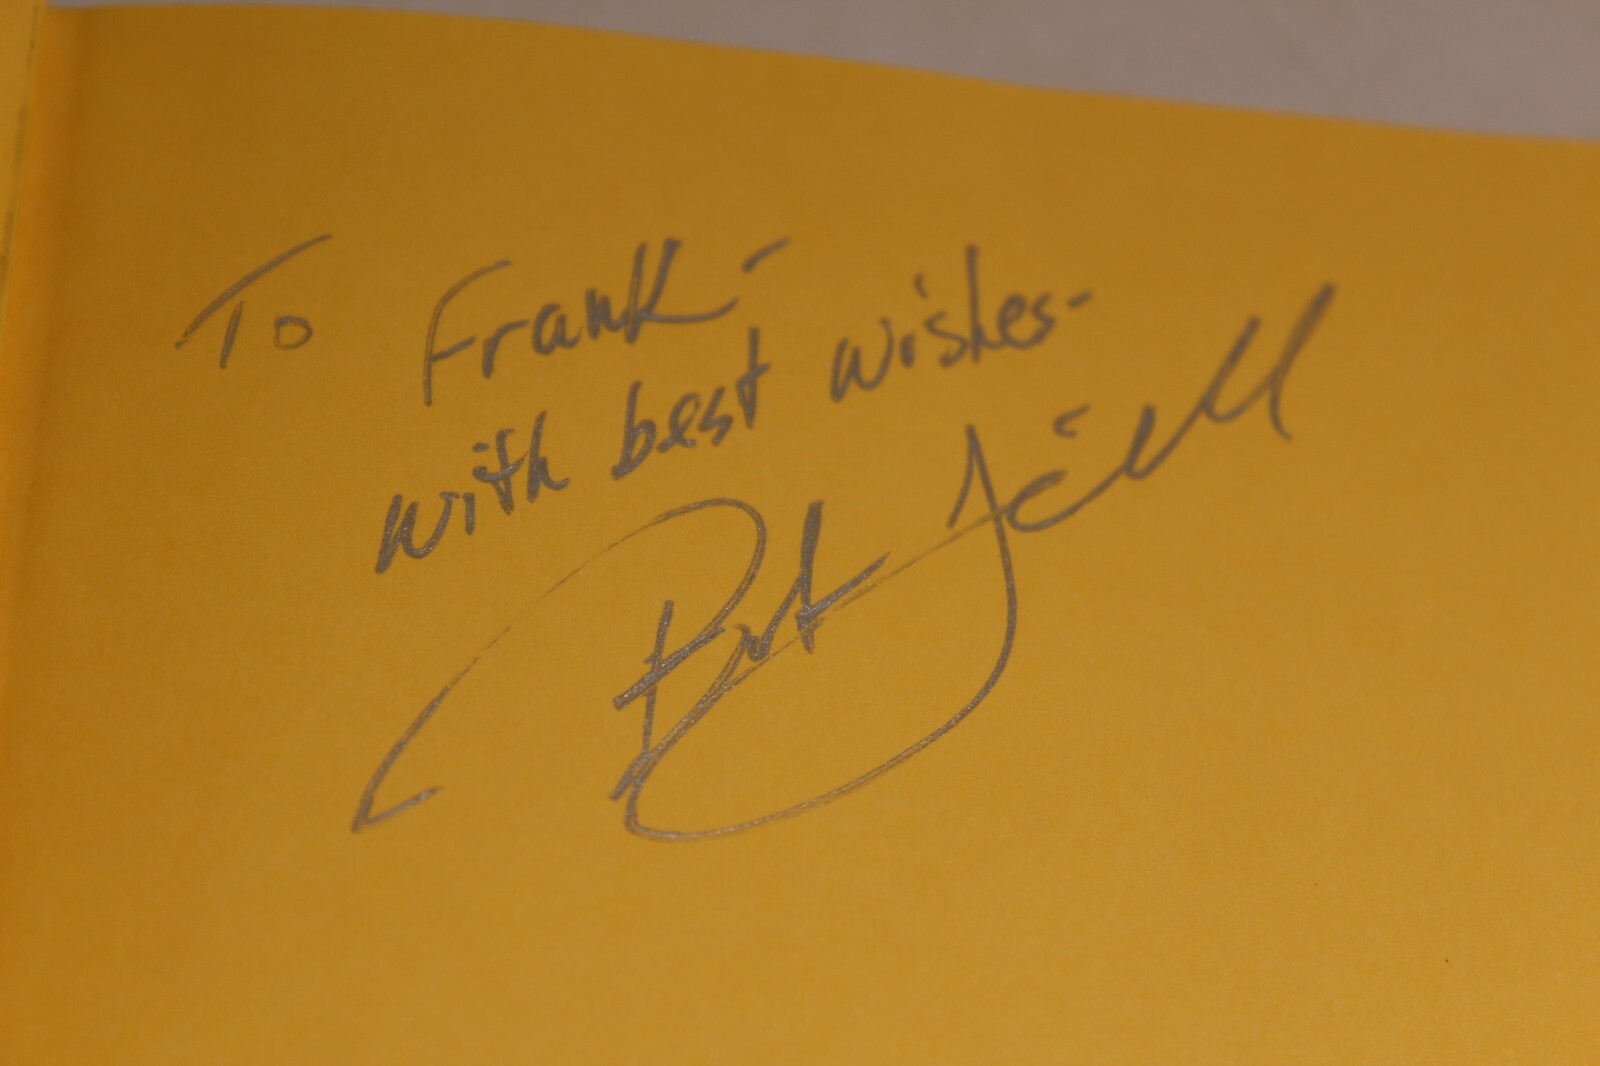 To Frank-
with best wishes-